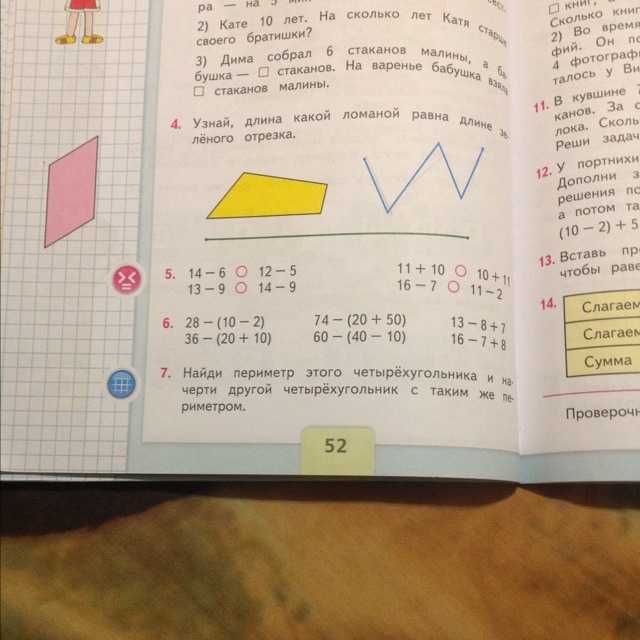 ра — на 5
2) Кате 10 лет. На сколько лет Катя старше
своего братишки?
3) Дима собрал 6 стаканов малины, а ба-
бушка — □ стаканов. На варенье бабушка взяла
□ стаканов малины.
4. Узнай, длина какой ломаной равна длине зе-
лёного отрезка.
5. 14 − 6 ○ 12 − 5 11 + 10 ○ 10 + 11
13 − 9 ○ 14 − 9 16 − 7 ○ 11 − 2
6. 28 − (10 − 2) 74 − (20 + 50) 13 − 8 + 7
36 − (20 + 10) 60 − (40 − 10) 16 − 7 + 8
7. Найди периметр этого четырёхугольника и на-
черти другой четырёхугольник с таким же пе-
риметром.
52
□ книг,
Сколько книг
2) Во время
фий. Он по
4 фотограф
талось у Ви
11. В кувшине 7
канов. За
лока. Сколь
Реши задач
12. У портнихи
Дополни з
решения по
а потом та
(10 − 2) + 5
13. Вставь пр
чтобы раве
14. Слагаем
Слагаем
Сумма
Проверочн